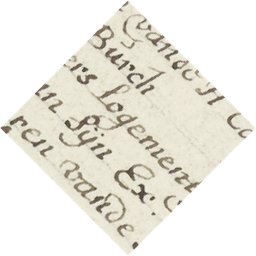 vande H Co
Burch
ers logement
in Sijn Ex:
ren vande